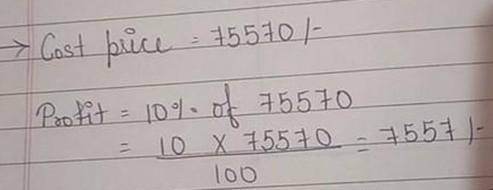 → Cost price = 75570/-
Profit = 10% of 75570
= 10 X 75570 = 7557/-
100